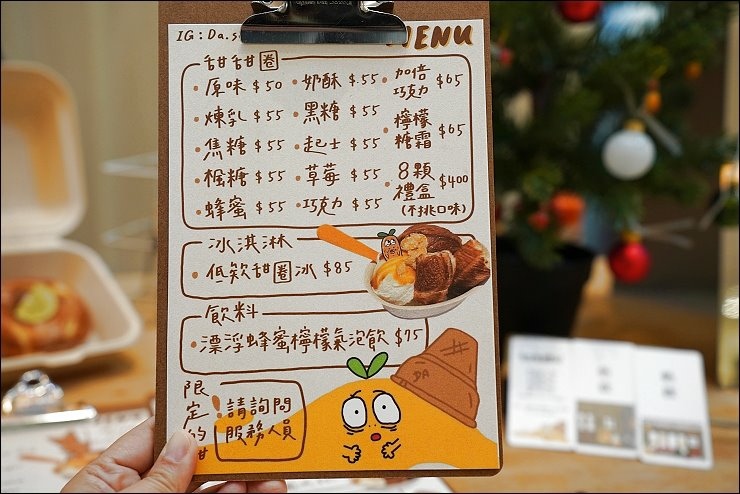 IG : Da.s
MENU
甜甜圈
原味 $50
煉乳 $55
焦糖 $55
楓糖 $55
蜂蜜 $55
奶酥 $55
黑糖 $55
起士 $55
草莓 $55
巧克力 $55
加倍
巧克力 $65
檸檬
糖霜 $65
8顆
禮盒 $400
(不挑口味)
冰淇淋
低欸甜圈冰 $85
飲料
漂浮蜂蜜檸檬氣泡飲 $75
限
定
的
甜
請詢問
服務人員
DA